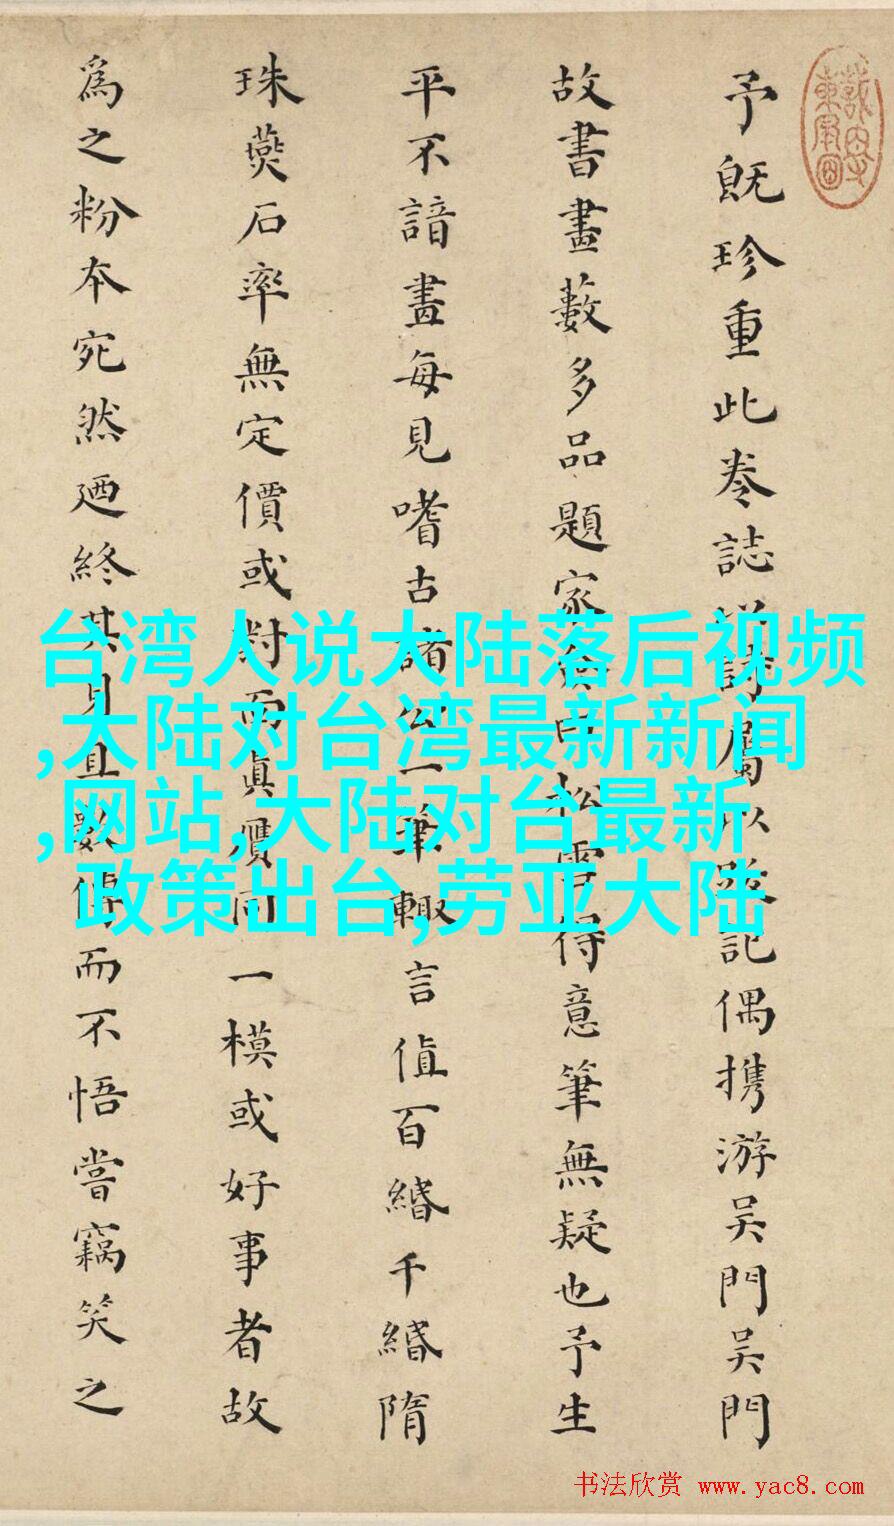 予既珍重此卷誌詩屬以記偶携游吴門吴門
故書畫藪多品題家僉曰松雪得意筆無疑也予生
平不諳畫每見嗜古諸公一筆輙言值百緡千緡隋
珠燕石率無定價或對面眞贋同一模或好事者故
爲之粉本宛然廼終其身且數傳而不悟嘗竊笑之
台湾人说大陆落后视频
,大陆对台湾最新新闻
,网站,大陆对台最新
政策出台,劳亚大陆
书法欣赏 www.yac8.com